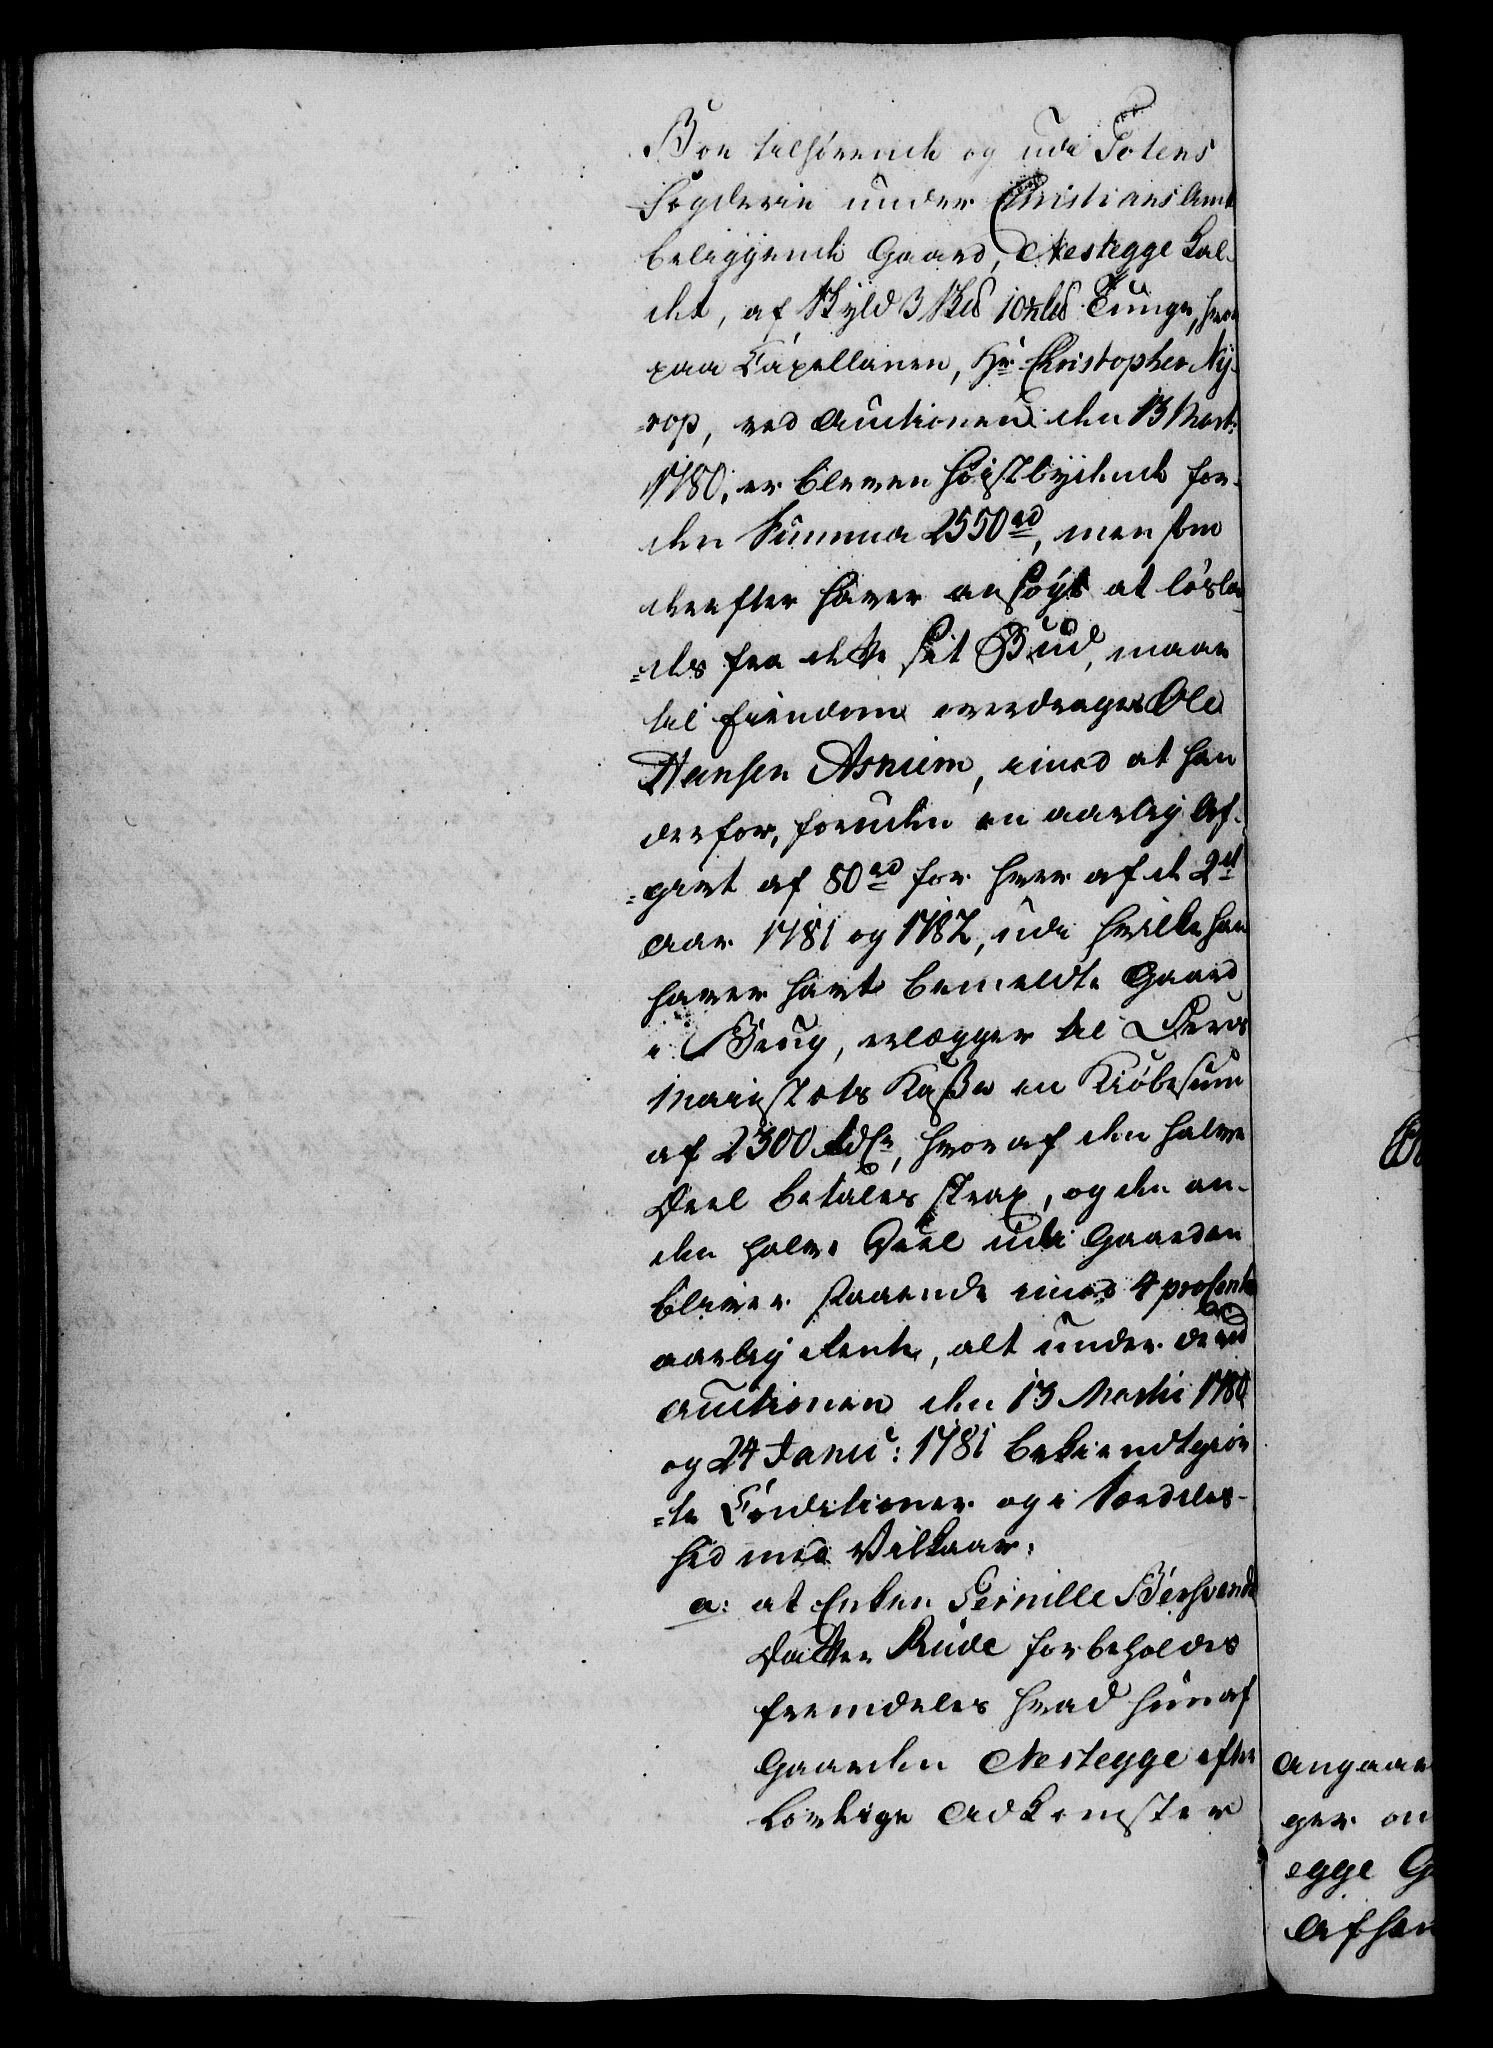 Boe tilhørende og udi Totens
Fogderie under Christians Amt
beliggende Gaard, Nestegge kal-
det, af Skyld 3 Skd 10½ ls Tunge, hvor
paa Capellanen, Hr Christopher Ny-
rop, ved Auctionen den 13 Mart:
1780, er bleven høistbydende for
den Summa 2550 rd, men som
derefter haver ansøgt at løsla-
=des fra dette sit Bud, maae
til Eiendom overdrages Ole
Hansen Asnum, imod at han
derfor, foruden en aarlig Af-
=givt af 80 rd for hver af de 2de
Aar 1781 og 1782, udi hvilke han
haver havt bemeldte Gaard
i Brug, erlægger til Deres
Majestæts Kasse en Kiøbesum
af 2300 Rdlr, hvoraf den halve
Deel betales strax, og den an-
den halve Deel udi Gaarden
bliver staaende imod 4 procento
aarlig Rente, alt under de ved
Auctionen den 13 Martii 1780
og 24 Janu: 1781 bekiendtgior
=te Conditioner og i Særdeles-
hed med Vilkaar:
a: at Enken Pernille Børsvends
Datter Rude forbeholdes
fremdeles hvad hun af
Gaarden Nestegge efter
lovlige Adkomster
Angaae
ger om
egge G
Afhan